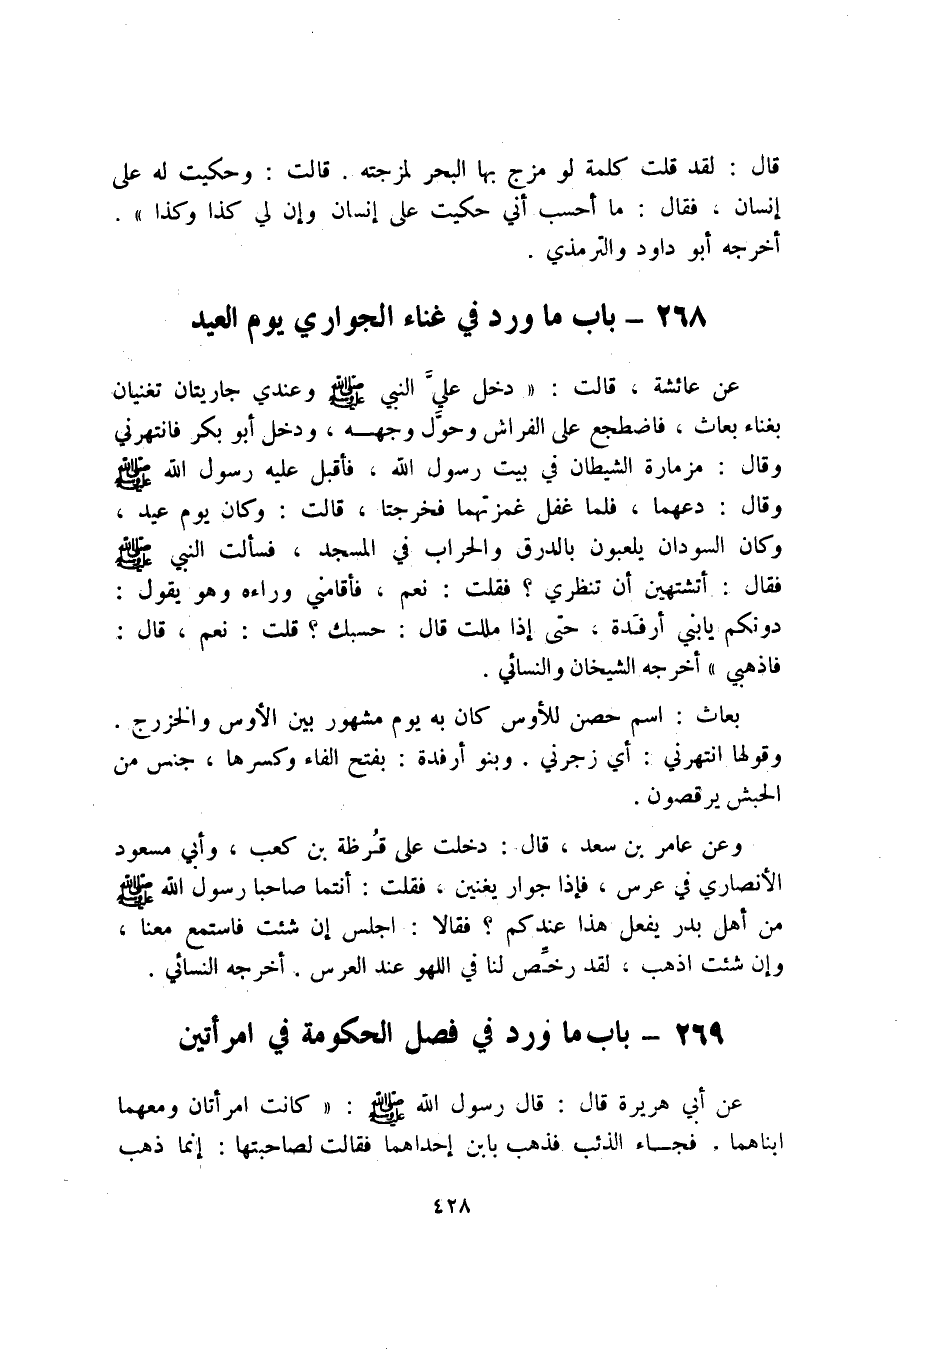 قال : لقد قلت كلمة لو مزج بها البحر لمزجته . قالت : وحكيت له على
إنسان ، فقال : ما أحسب أني حكيت على إنسان وإن لي كذا وكذا » .
أخرجه أبو داود والترمذي .
٢٦٨ – باب ما ورد في غناء الجواري يوم العيد
عن عائشة ، قالت : « دخل عليَّ النبي ﷺ وعندي جاريتان تغنيان
بغناء بعاث ، فاضطجع على الفراش وحوَّل وجهـــه ، ودخل أبو بكر فانتهرني
وقال : مزمارة الشيطان في بيت رسول الله ، فأقبل عليه رسول الله ﷺ
وقال : دعهما ، فلما غفل غمزتهما فخرجتا ، قالت : وكان يوم عيد ،
وكان السودان يلعبون بالدرق والحراب في المسجد ، فسألت النبي ﷺ
فقال : أتشتهين أن تنظري ؟ فقلت : نعم ، فأقامني وراءه وهو يقول :
دونكم يابني أرفدة ، حتى إذا مللت قال : حسبك ؟ قلت : نعم ، قال :
فاذهبي » أخرجه الشيخان والنسائي .
بعاث : اسم حصن للأوس كان به يوم مشهور بين الأوس والخزرج .
وقولها انتهرني : أي زجرني . وبنو أرفدة : بفتح الفاء وكسرها ، جنس من
الحبش يرقصون .
وعن عامر بن سعد ، قال : دخلت على قُرظة بن كعب ، وأبي مسعود
الأنصاري في عرس ، فإذا جوار يغنين ، فقلت : أنتما صاحبا رسول الله ﷺ
من أهل بدر يفعل هذا عندكم ؟ فقالا : اجلس إن شئت فاستمع معنا ،
وإن شئت اذهب ، لقد رخَّص لنا في اللهو عند العرس . أخرجه النسائي .
٢٦٩ – باب ما ورد في فصل الحكومة في امرأتين
عن أبي هريرة قال : قال رسول الله ﷺ : « كانت امرأتان ومعهما
ابناهما . فجـــاء الذئب فذهب بابن إحداهما فقالت لصاحبتها : إنما ذهب
٤٢٨